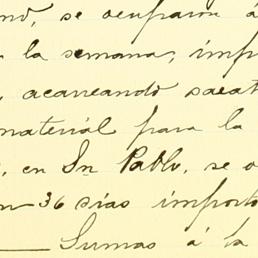 se ocuparon á
la semana,
, acarreando
material para la
, en Sn Pablo, se o
36 dias importo
Sumas á la